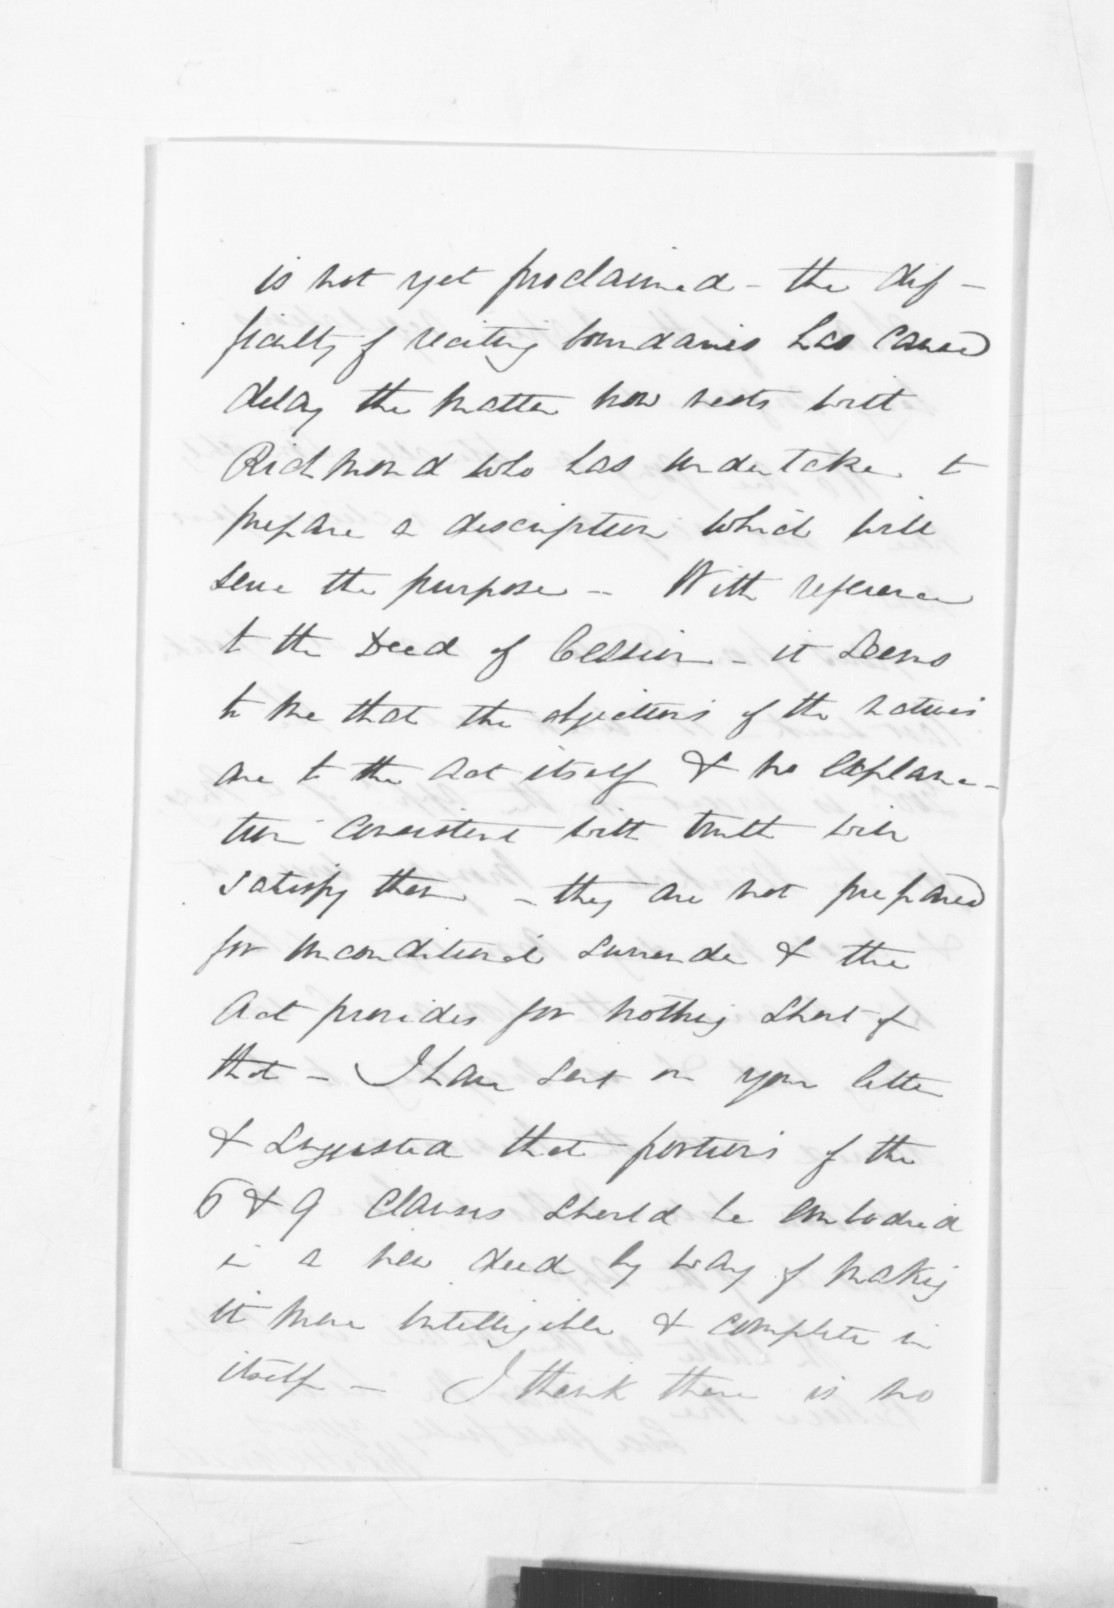 is not yet proclaimed - the dif-
ficulty of reciting boundaries has caused
delay the matter now rests with
Richmond who has undertaken to
prepare a description which will
serve the purpose - With reference
to the Deed of Cession - it seems
to me that the objections of the natives
are to the Act itself & no explana-
tion consistent with truth will
satisfy them - they are not prepared
for unconditional surrender & the
Act provides for nothing short of
that - I have sent on your letter
& suggested that portions of the
6 & 9 clauses should be embodied
in a new deed by way of making
it more intelligible & complete in
itself - I think there is no